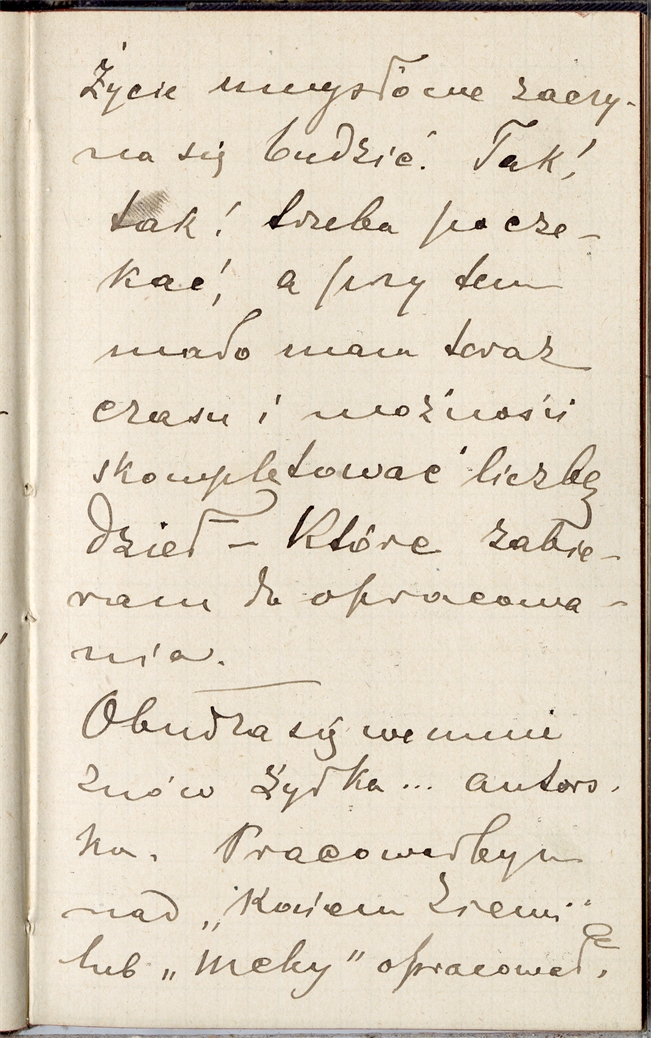 Życie umysłowe zaczy-
na się budzić. Tak!
tak! trzeba pocze-
kać!, a przy tem
mało mam teraz
czasu i możności
skompletować liczbę
dzieł – które zabie-
ram do opracowa-
nia.
Obudza się we mnie
znów żyłka... autors-
ka. Pracowałbym
nad „Końcem Ziemi"
lub „Meky" opracował.